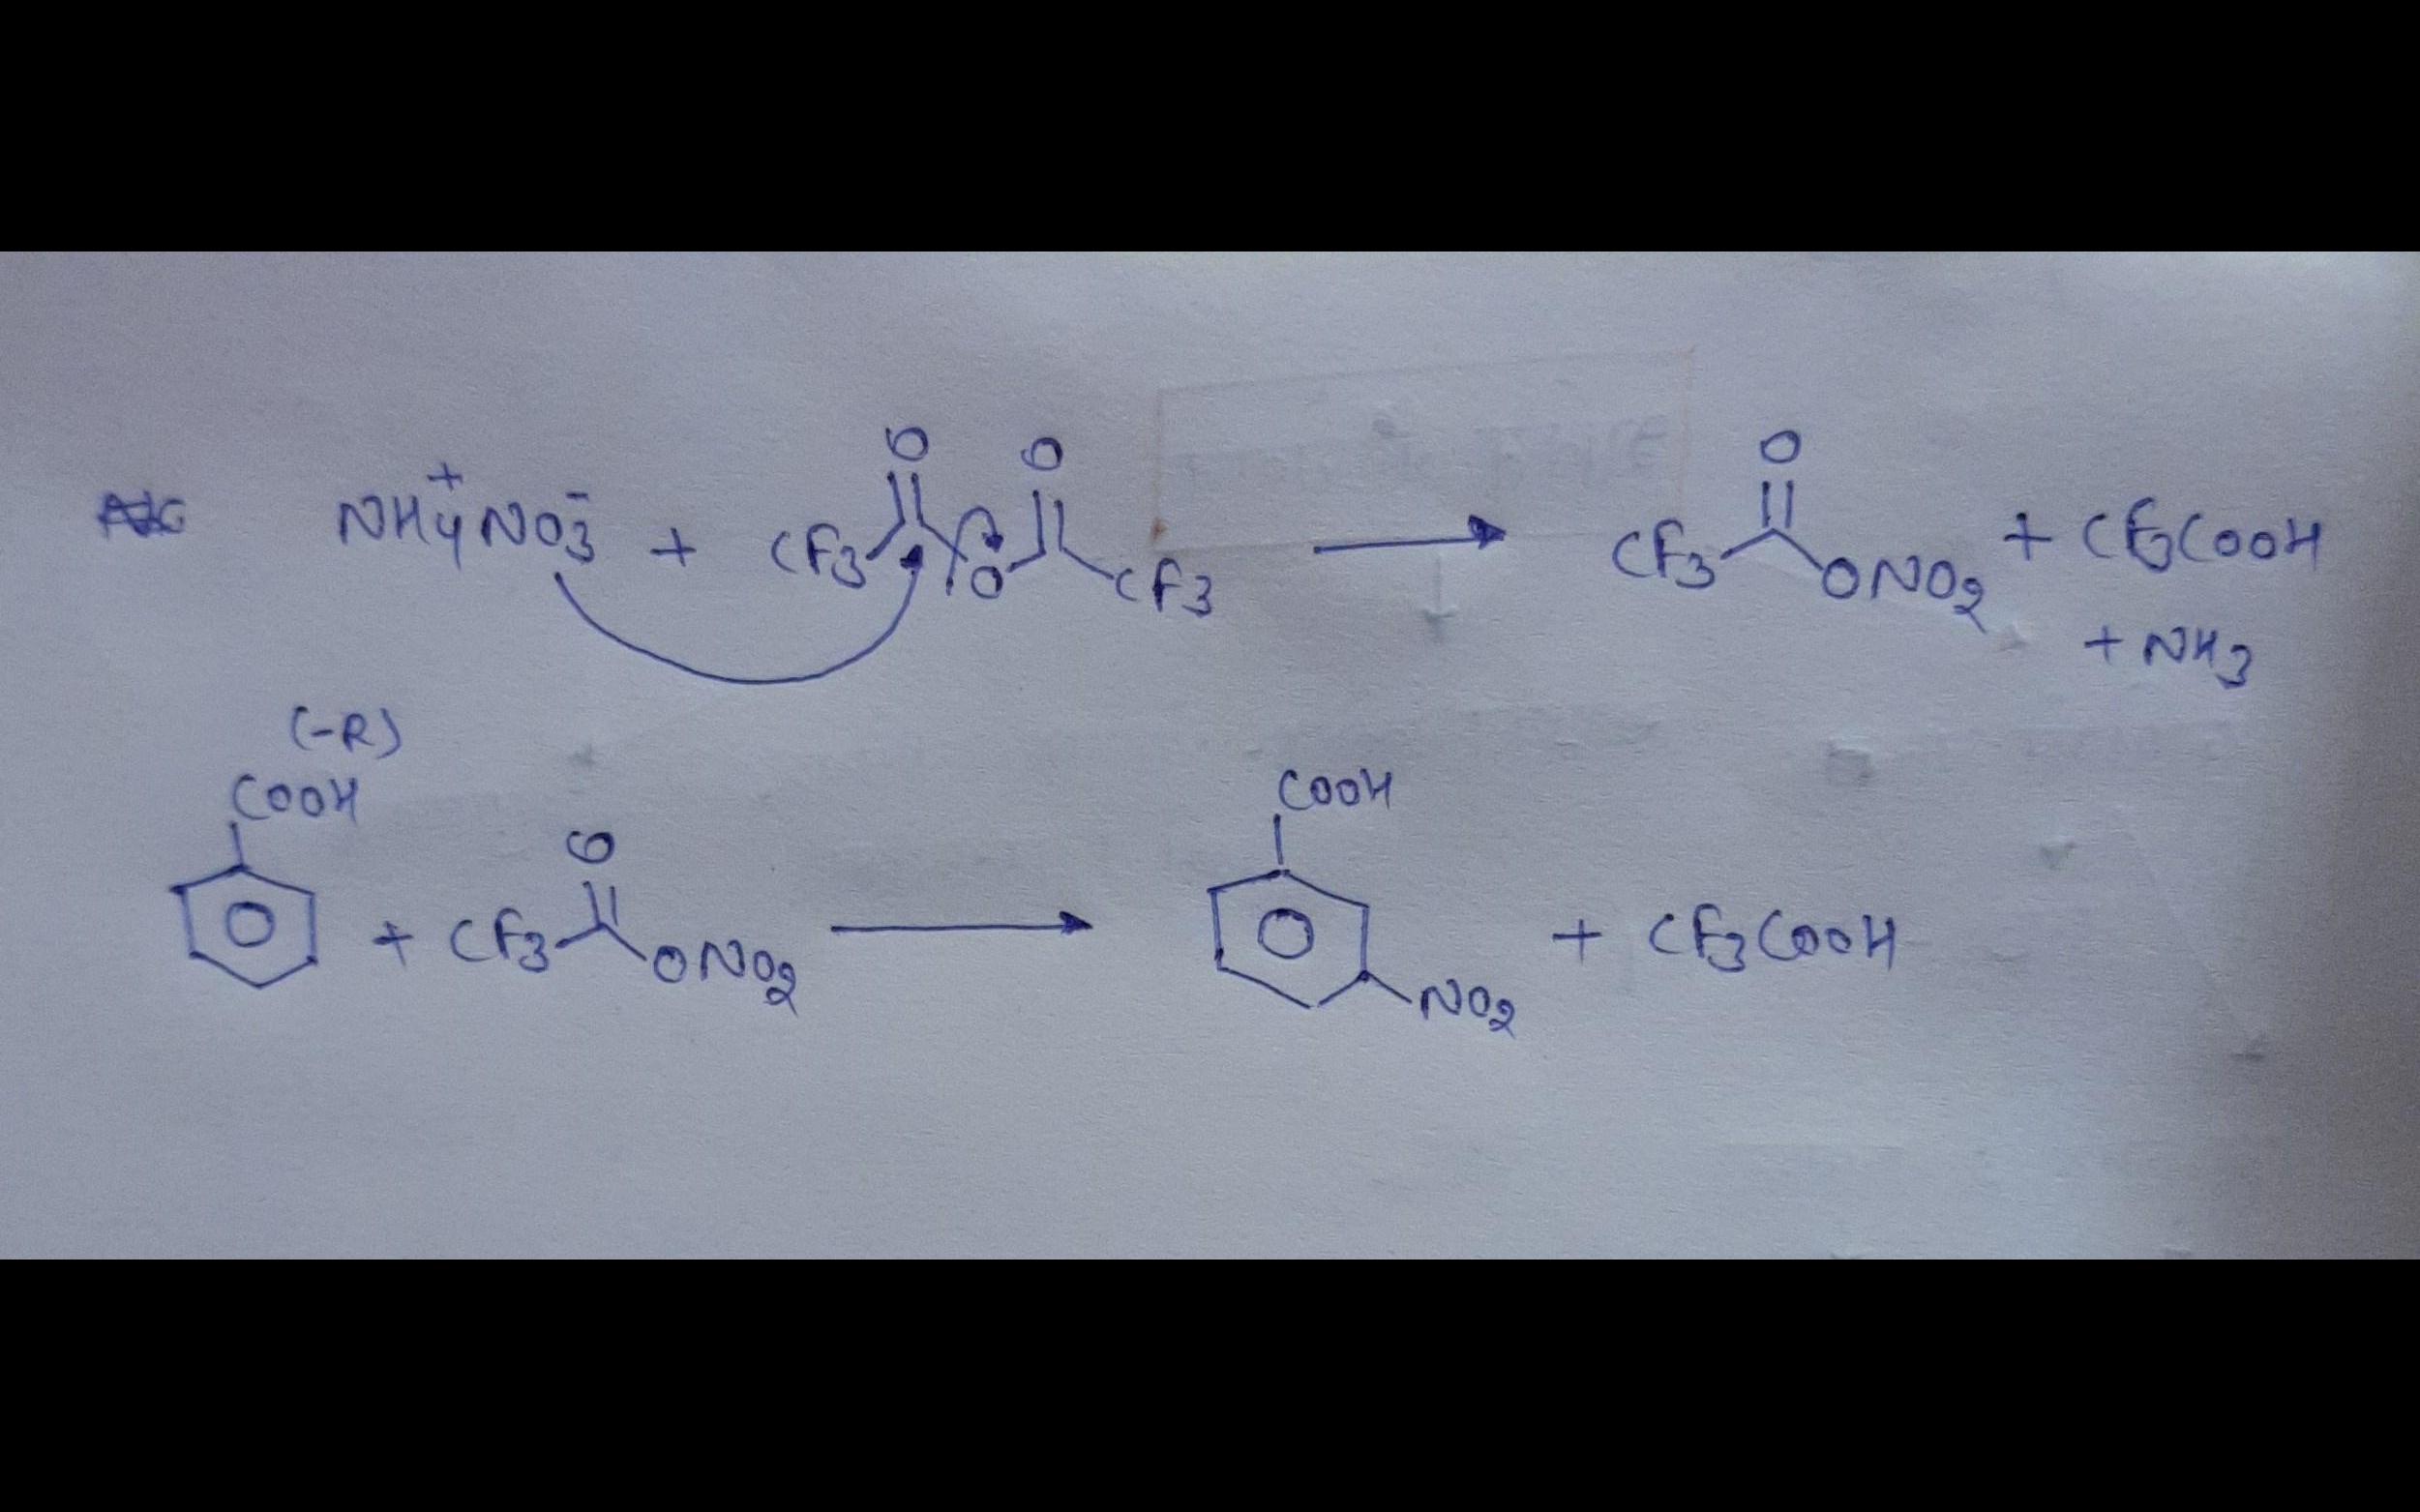 NH4+ NO3- + CF3 O O O CF3 → CF3 O ONO2 + CF3COOH
+ NH3
(-R)
COOH
+ CF3 O ONO2 → COOH NO2 + CF3COOH